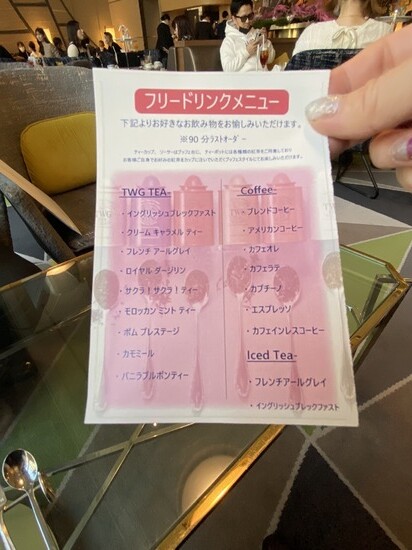 フリードリンクメニュー
下記よりお好きなお飲み物をお愉しみいただけます。
※90 分ラストオーダー
TWG TEA-
・イングリッシュブレックファスト
・クリーム キャラメル ティー
・フレンチ アールグレイ
・ロイヤル ダージリン
・サクラ！サクラ！ティー
・モロッカン ミント ティー
・ポム プレステージ
・カモミール
・バニラブルボンティー
Coffee-
・ブレンドコーヒー
・アメリカンコーヒー
・カフェオレ
・カフェラテ
・カプチーノ
・エスプレッソ
・カフェインレスコーヒー
Iced Tea-
・フレンチアールグレイ
・イングリッシュブレックファスト